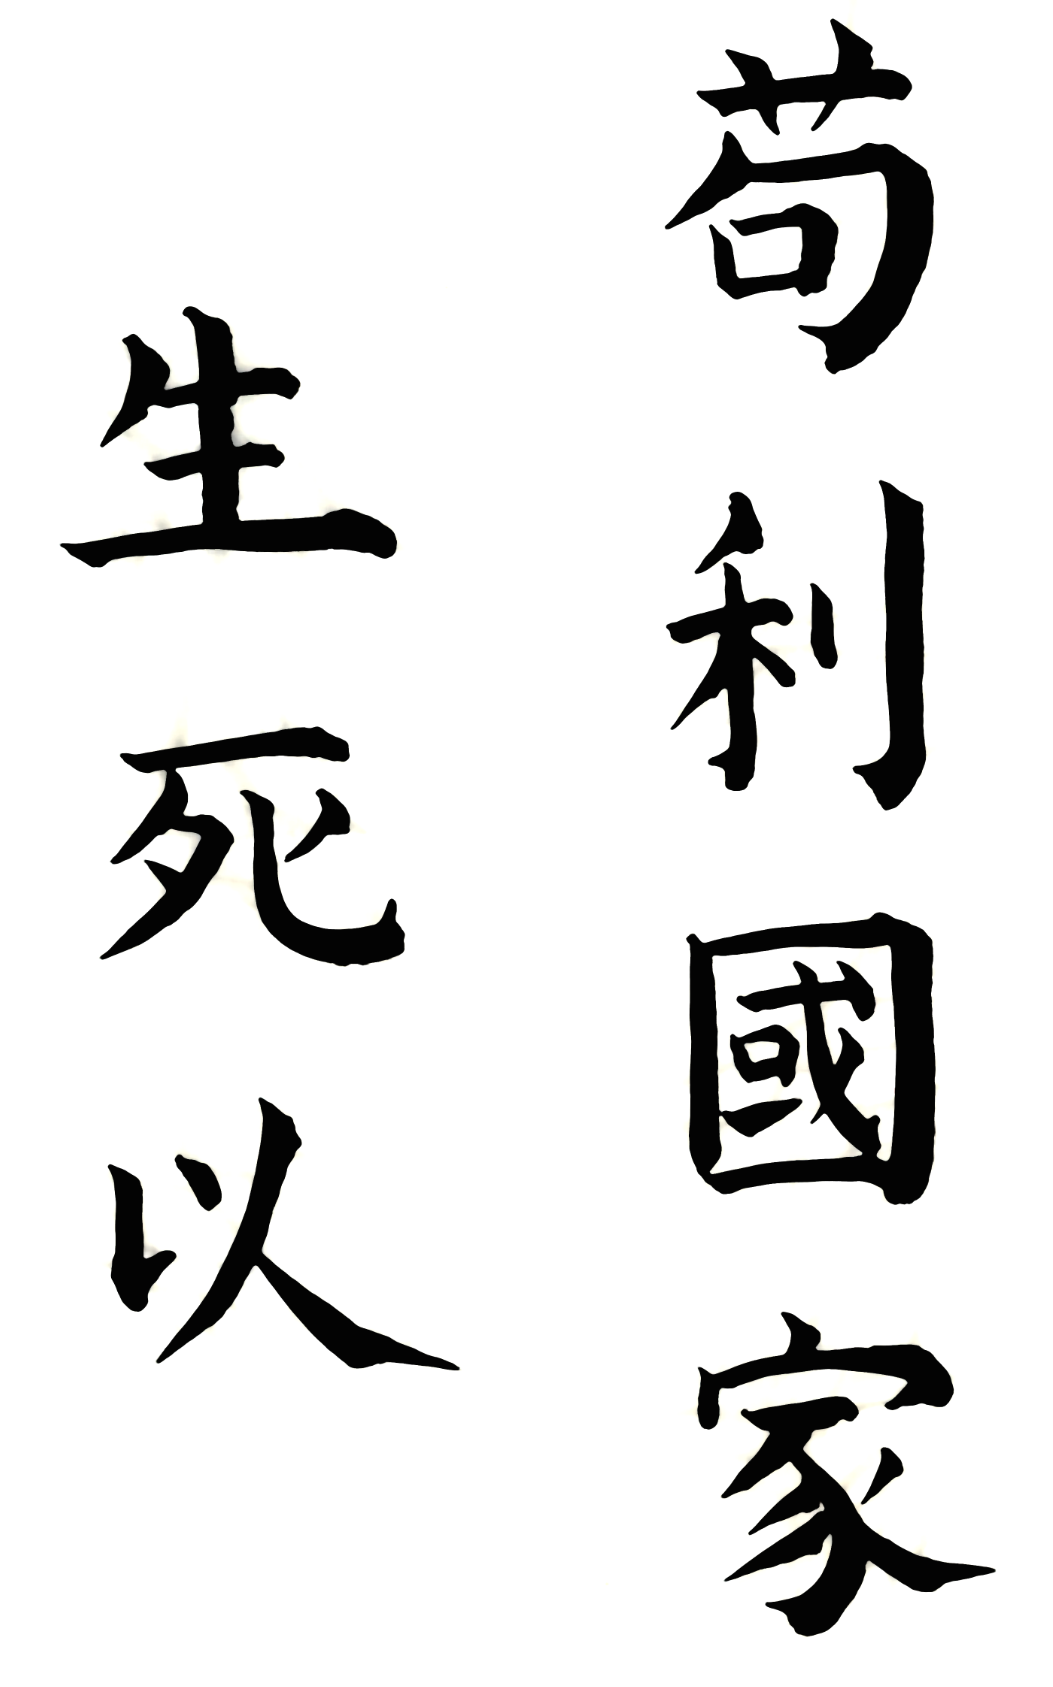 苟利國家
生死以